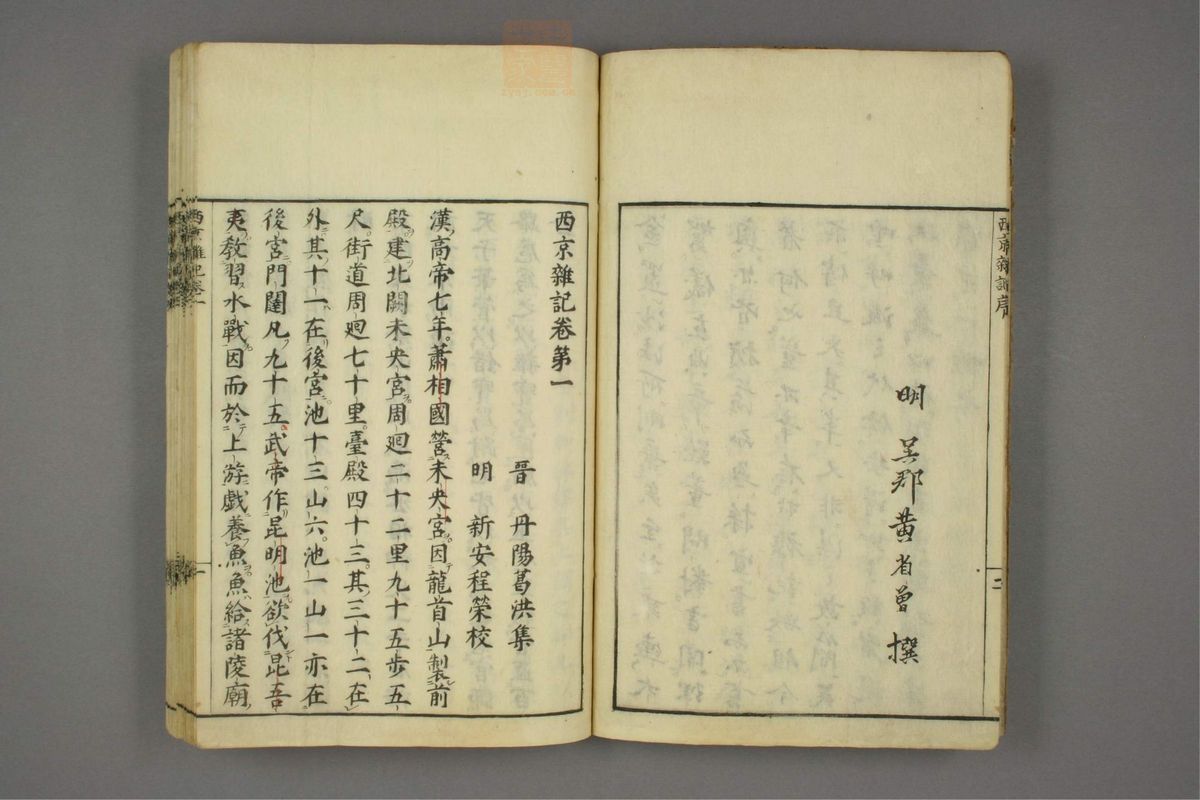 西京雜記序
二
明 吳郡黃省曾 撰
西京雜記卷第一
晉 丹陽葛洪集
明 新安程榮校
漢高帝七年蕭相國營未央宮因龍首山製前
殿建北闕未央宮周廻二十二里九十五步五
尺街道周廻七十里臺殿四十三其三十二在
外其十一在後宮池十三山六池一山一亦在
後宮門闥凡九十五武帝作昆明池欲伐昆吾
夷教習水戰因而於上游戲養魚魚給諸陵廟
西京雜記卷一
一